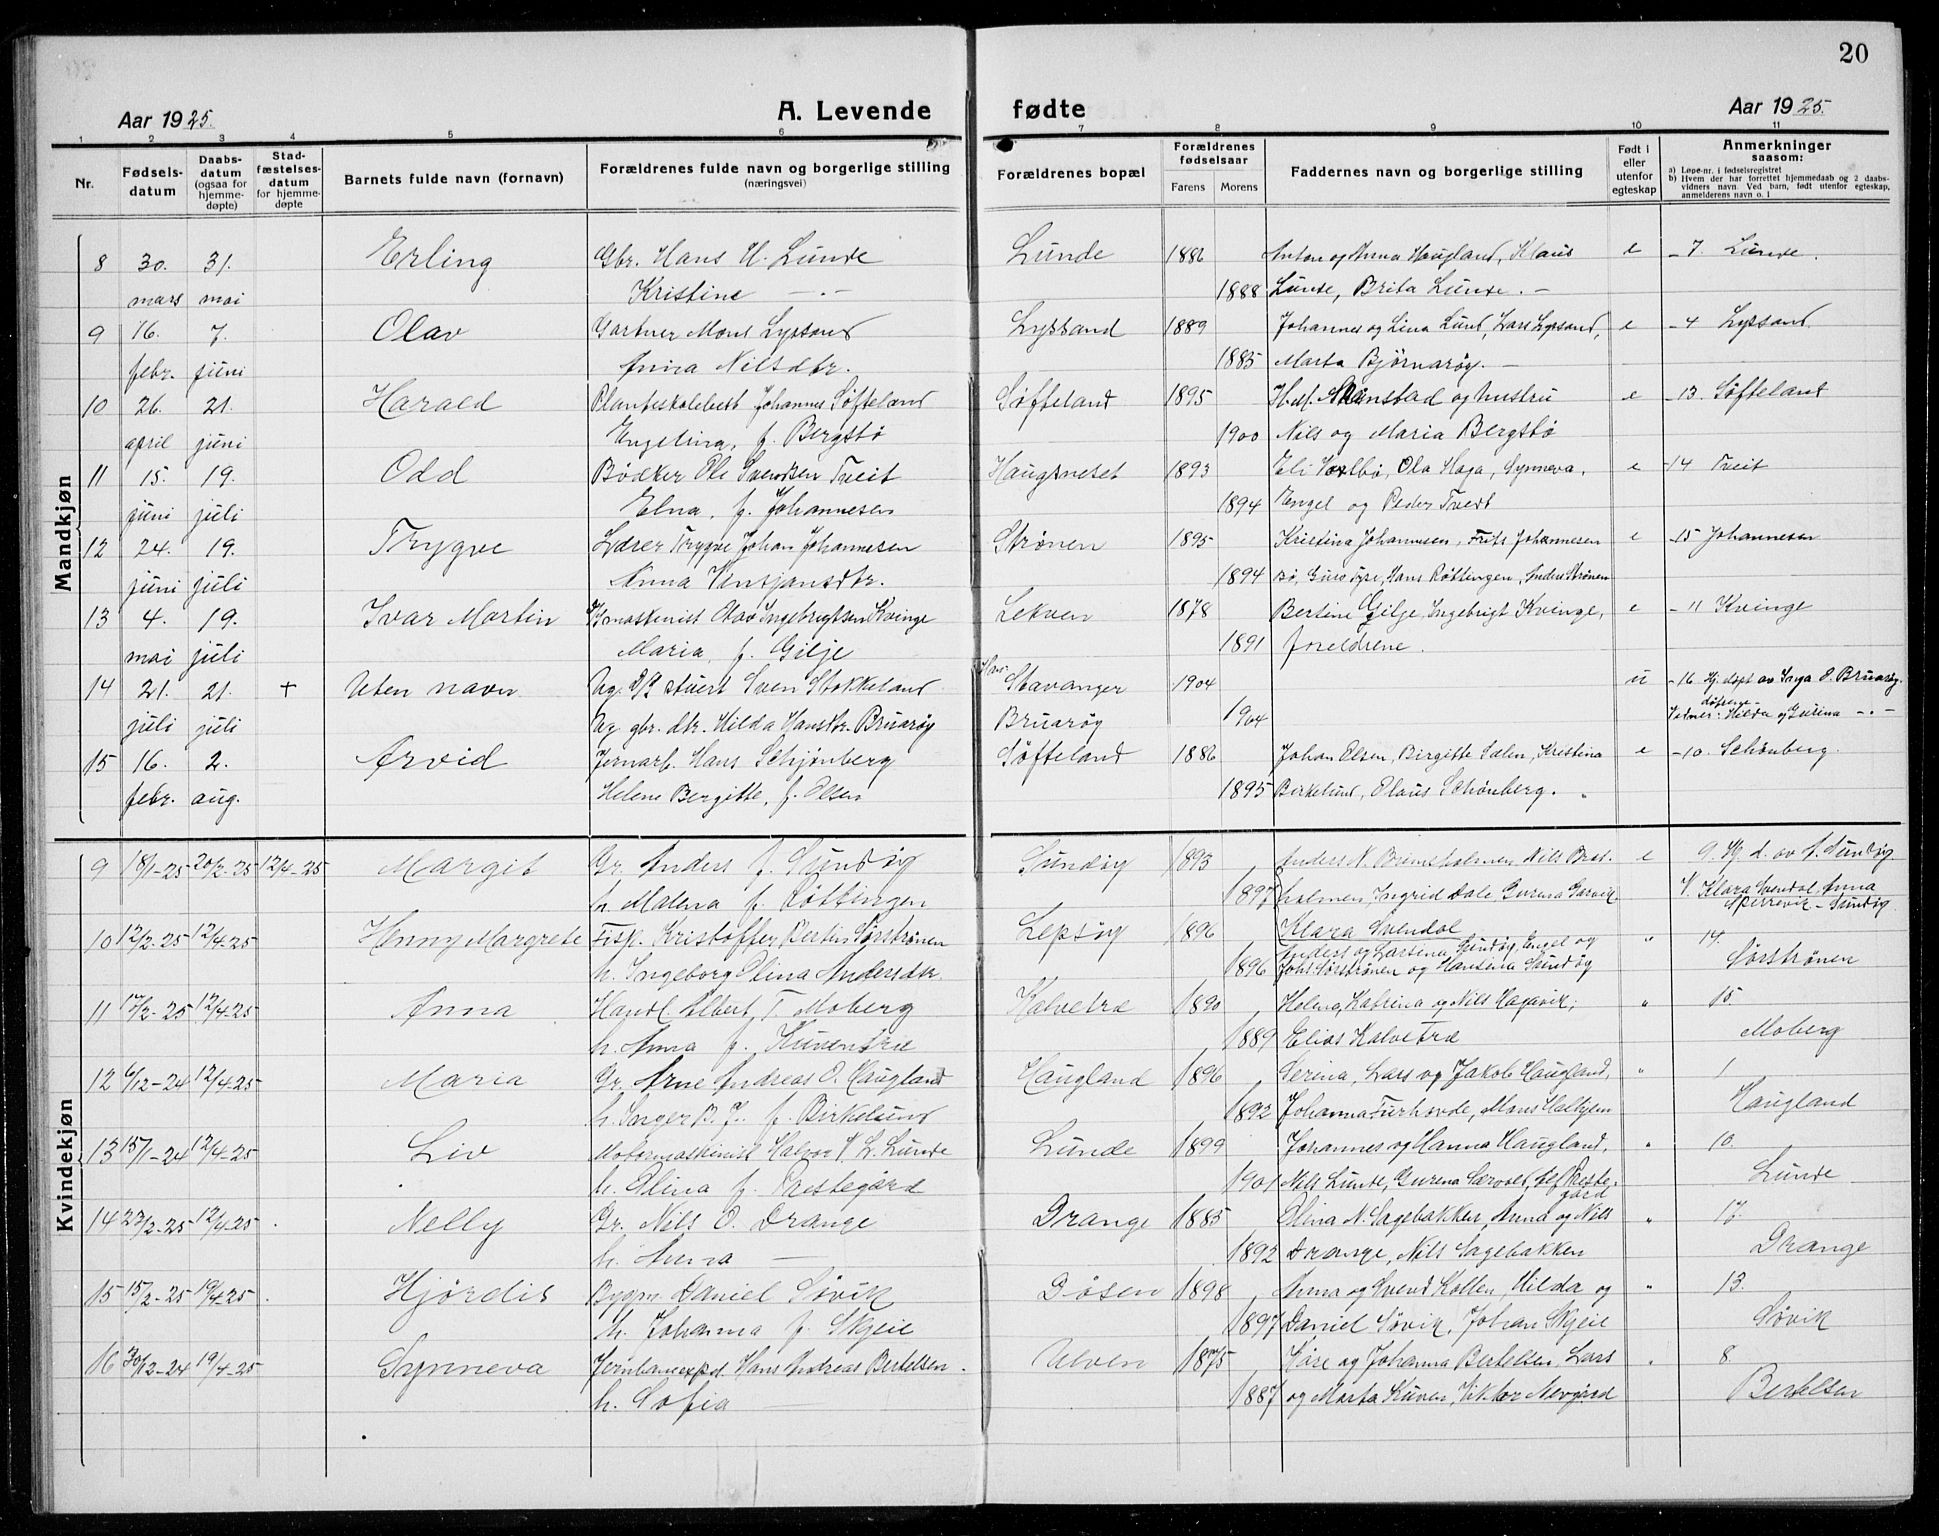 20
Aar 1925.
A. Levende
fødte
Aar 1925.
1 2 3 4 5 6 7 8 9 10 11
Nr.
Fødsels-
datum
Daabs-
datum
(ogsaa for
hjemme-
døpte)
Stad-
fæstelses-
datum
for hjemme-
døpte
Barnets fulde navn (fornavn)
Forældrenes fulde navn og borgerlige stilling
(næringsvei)
Forældrenes bopæl
Forældrenes
fødselsaar
Farens Morens
Faddernes navn og borgerlige stilling
Født i
eller
utenfor
egteskap
Anmerkninger
saasom:
a) Løpe-nr. i fødselsregistret
b) Hvem der har forrettet hjemmedaab og 2 daabs-
vidners navn. Ved barn, født utenfor egteskap,
anmelderens navn o. l
Mandkjøn
8 30. 31. Erling Gbr. Hans H. Lunde Lunde 1886 Anton og Anna Haugland, Klaus e - 7. Lunde.
mars mai Kristine — " — 1888 Lunde, Brita Lunde. -
9 16. 7. Olav Gartner Mons Lyssand Lyssand 1889 Johannes og Lina Lund, Lars Lyssand, e - 4 Lyssand
febr. juni Anna Nilsdtr. 1885 Marta Bjørnarøy. -
10 26. 21. Harald Planteskolebest Johannes Søfteland Søfteland 1895 og hustru e - 13. Søfteland
april juni Engelina, f. Bergstø 1900 Nils og Maria Bergstø
11 15. 19. Odd Bødker Ole Svendsen Tveit Haugsneset 1893 Eli Ola Haga, Synneva, e - 14 Tveit
juni juli Elna, f. Johannesen 1894 Engel og Peder Tvedt
12 24. 19. Trygve Lærer Trygve Johan Johannesen Strønen 1895 Kristina Johannesen, Frits Johannesen e - 15 Johannesen
juni juli Anna Vinsjansdtr. 1894 Bø, Guro Hans Røttingen, Andre Strønen
13 4. 19. Ivar Martin Olav Ingebrigtsen Kvinge Lekven 1878 Bertine Gilje, Ingebrigt Kvinge, e - 11 Kvinge
mai juli Maria, f. Gilje 1891 foreldrene.
14 21. 21. + Uten navn Ug. D/S stuert Sven Stokkeland Stavanger 1904 u - 16 Hj. døpt av Inga O. Bruarøy.
juli juli Ug gbr. dtr. Hilda Hansdtr. Bruarøy Bruarøy 1904 Vidner: Hilda og Gurina - " -
15 16. 2. Arvid Jernarb. Hans Schjønberg Søfteland 1886 Johan Olsen, Birgitte Salen, Kristina e - 10. Schønberg.
febr. aug. Helene Bergitte, f. Olsen 1895 Birkelund, Olaus Schønberg. "
Kvindekjøn
9 18/1-25 20/2-25 12/4-25 Margit Gr. Anders J. Sundøy Sundøy 1893 Anders N. Brimsholmen, Nils Brims- e 9. Hj. d. av A. Sundøy
h. Malena f. Røttingen 1897 holmen, Ingrid Dale, Gurina Garvik V. Klara Svendal, Anna
Klara Svendal Sperrevik - Sundøy.
10 12/2-25 12/4-25 Henny Margrete Fisk. Kristoffer Bertin Sørstrønen Lepsøy 1896 Anders og Larsina Sundøy, Engel og " 14.
h. Ingeborg Olina Andersdtr 1896 Johs Sørstrønen og Hansina Sundøy Sørstrønen
11 17/2-25 12/4-25 Anna Handl. Albert T. Moberg Kalvetræ 1890 Helena, Katrina og Nils Hagavik; " 15.
h. Anna f. Kuventræ 1889 Elias Kalvetræ Moberg
12 6/12-24 12/4-25 Maria Gr. Arne Andreas O. Haugland Haugland 1896 Serina, Lars og Jakob Haugland, " 1
h. Inger B. J. f. Birkelund 1892 Johanna Turhovde, Mons Halhjem Haugland
13 15/1-24 12/4-25 Liv Motormaskinist Halvor V. L. Lunde Lunde 1899 Johannes og Hanna Haugland, " 10.
h. Olina f. Prestegård 1901 Nils Lunde, Gurena Særvoll, Prestegård Lunde
14 23/2-25 12/4-25 Nelly Gr. Nils O. Drange Drange 1885 Olina N. Sagebakken, Anna og Nils " 17.
h. Anna — 1892 Drange, Nils Sagebakken Drange
15 15/2-25 19/4-25 Hjørdis Bygm. Daniel Søvik Døsen 1898 Anna og Svend Kollen, Hilda og " 13.
h. Johanna f. Skjeie 1897 Daniel Søvik, Johan Skjeie Søvik
16 30/12-24 19/4-25 Synneva Jernbaneexpd. Hans Andreas Bertelsen. Ulven 1875 Kåre og Johanna Bertelsen, Lars " 8.
h. Sofia 1887 og Marta Kuven, Viktor Bertelsen